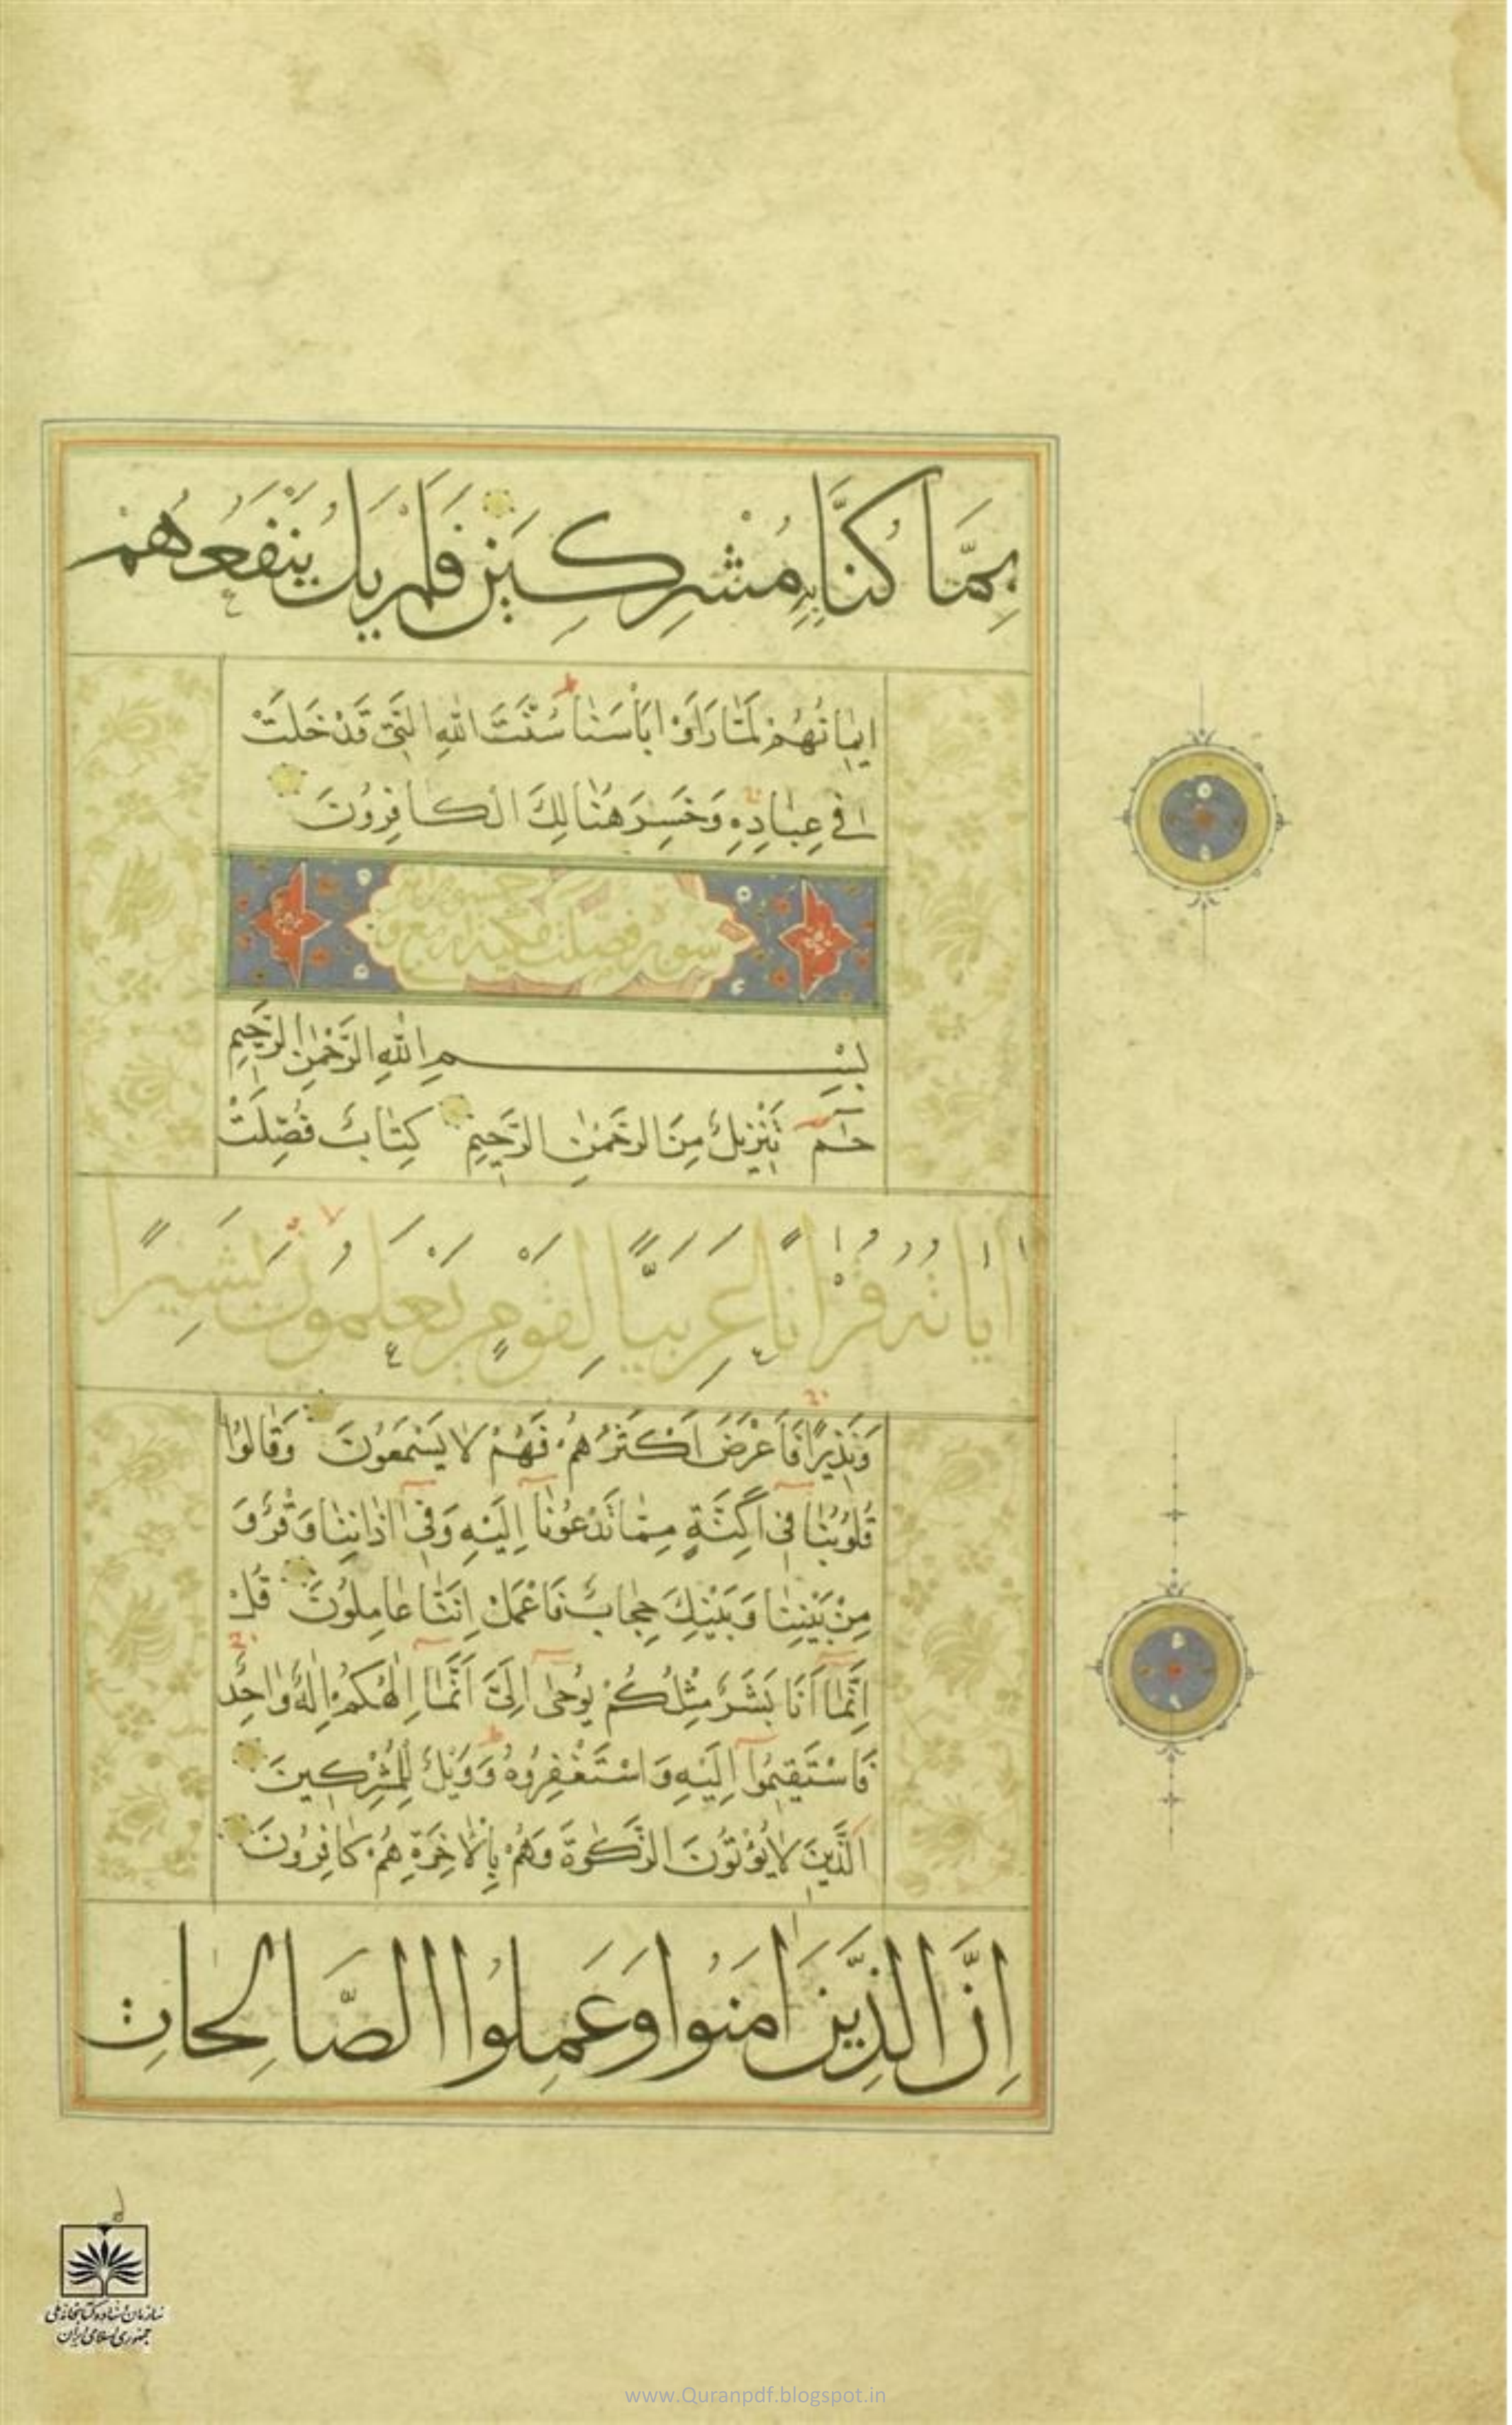 بِمَّا كُنَّا بِهِ مُشْرِكِينَ فَلَمْ يَكُ يَنْفَعُهُمْ
اِيمٰانُهُمْ لَمّٰا رَاَوْا بَأْسَنٰا سُنَّتَ اللّٰهِ الَّتِي قَدْ خَلَتْ
فِي عِبٰادِهِ وَخَسِرَ هُنٰالِكَ الْكافِرُونَ
سورة فصلت مكية اربع و
بِسْمِ اللّٰهِ الرَّحْمٰنِ الرَّحِيمِ
حٰم تَنْزِيلٌ مِنَ الرَّحْمٰنِ الرَّحِيمِ كِتٰابٌ فُصِّلَتْ
اٰيٰاتُهُ قُرْاٰنًا عَرَبِيًّا لِقَوْمٍ يَعْلَمُونَ بَشِيرًا
وَنَذِيرًا فَاَعْرَضَ اَكْثَرُهُمْ فَهُمْ لٰا يَسْمَعُونَ وَقٰالُوا
قُلُوبُنٰا فِي اَكِنَّةٍ مِمّٰا تَدْعُونٰا اِلَيْهِ وَفِي اٰذٰانِنٰا وَقْرٌ وَ
مِنْ بَيْنِنٰا وَبَيْنِكَ حِجٰابٌ فَاعْمَلْ اِنَّنٰا عٰامِلُونَ قُلْ
اِنَّمٰا اَنَا بَشَرٌ مِثْلُكُمْ يُوحٰى اِلَيَّ اَنَّمٰا اِلٰهُكُمْ اِلٰهٌ وٰاحِدٌ
فَاسْتَقِيمُوا اِلَيْهِ وَاسْتَغْفِرُوهُ وَوَيْلٌ لِلْمُشْرِكِينَ
اَلَّذِينَ لٰا يُؤْتُونَ الزَّكٰوةَ وَهُمْ بِالْاٰخِرَةِ هُمْ كٰافِرُونَ
اِنَّ الَّذِينَ اٰمَنُوا وَعَمِلُوا الصَّالِحاتِ
سازمان اسناد و کتابخانه ملی
جمهوری اسلامی ایران
www.Quranpdf.blogspot.in